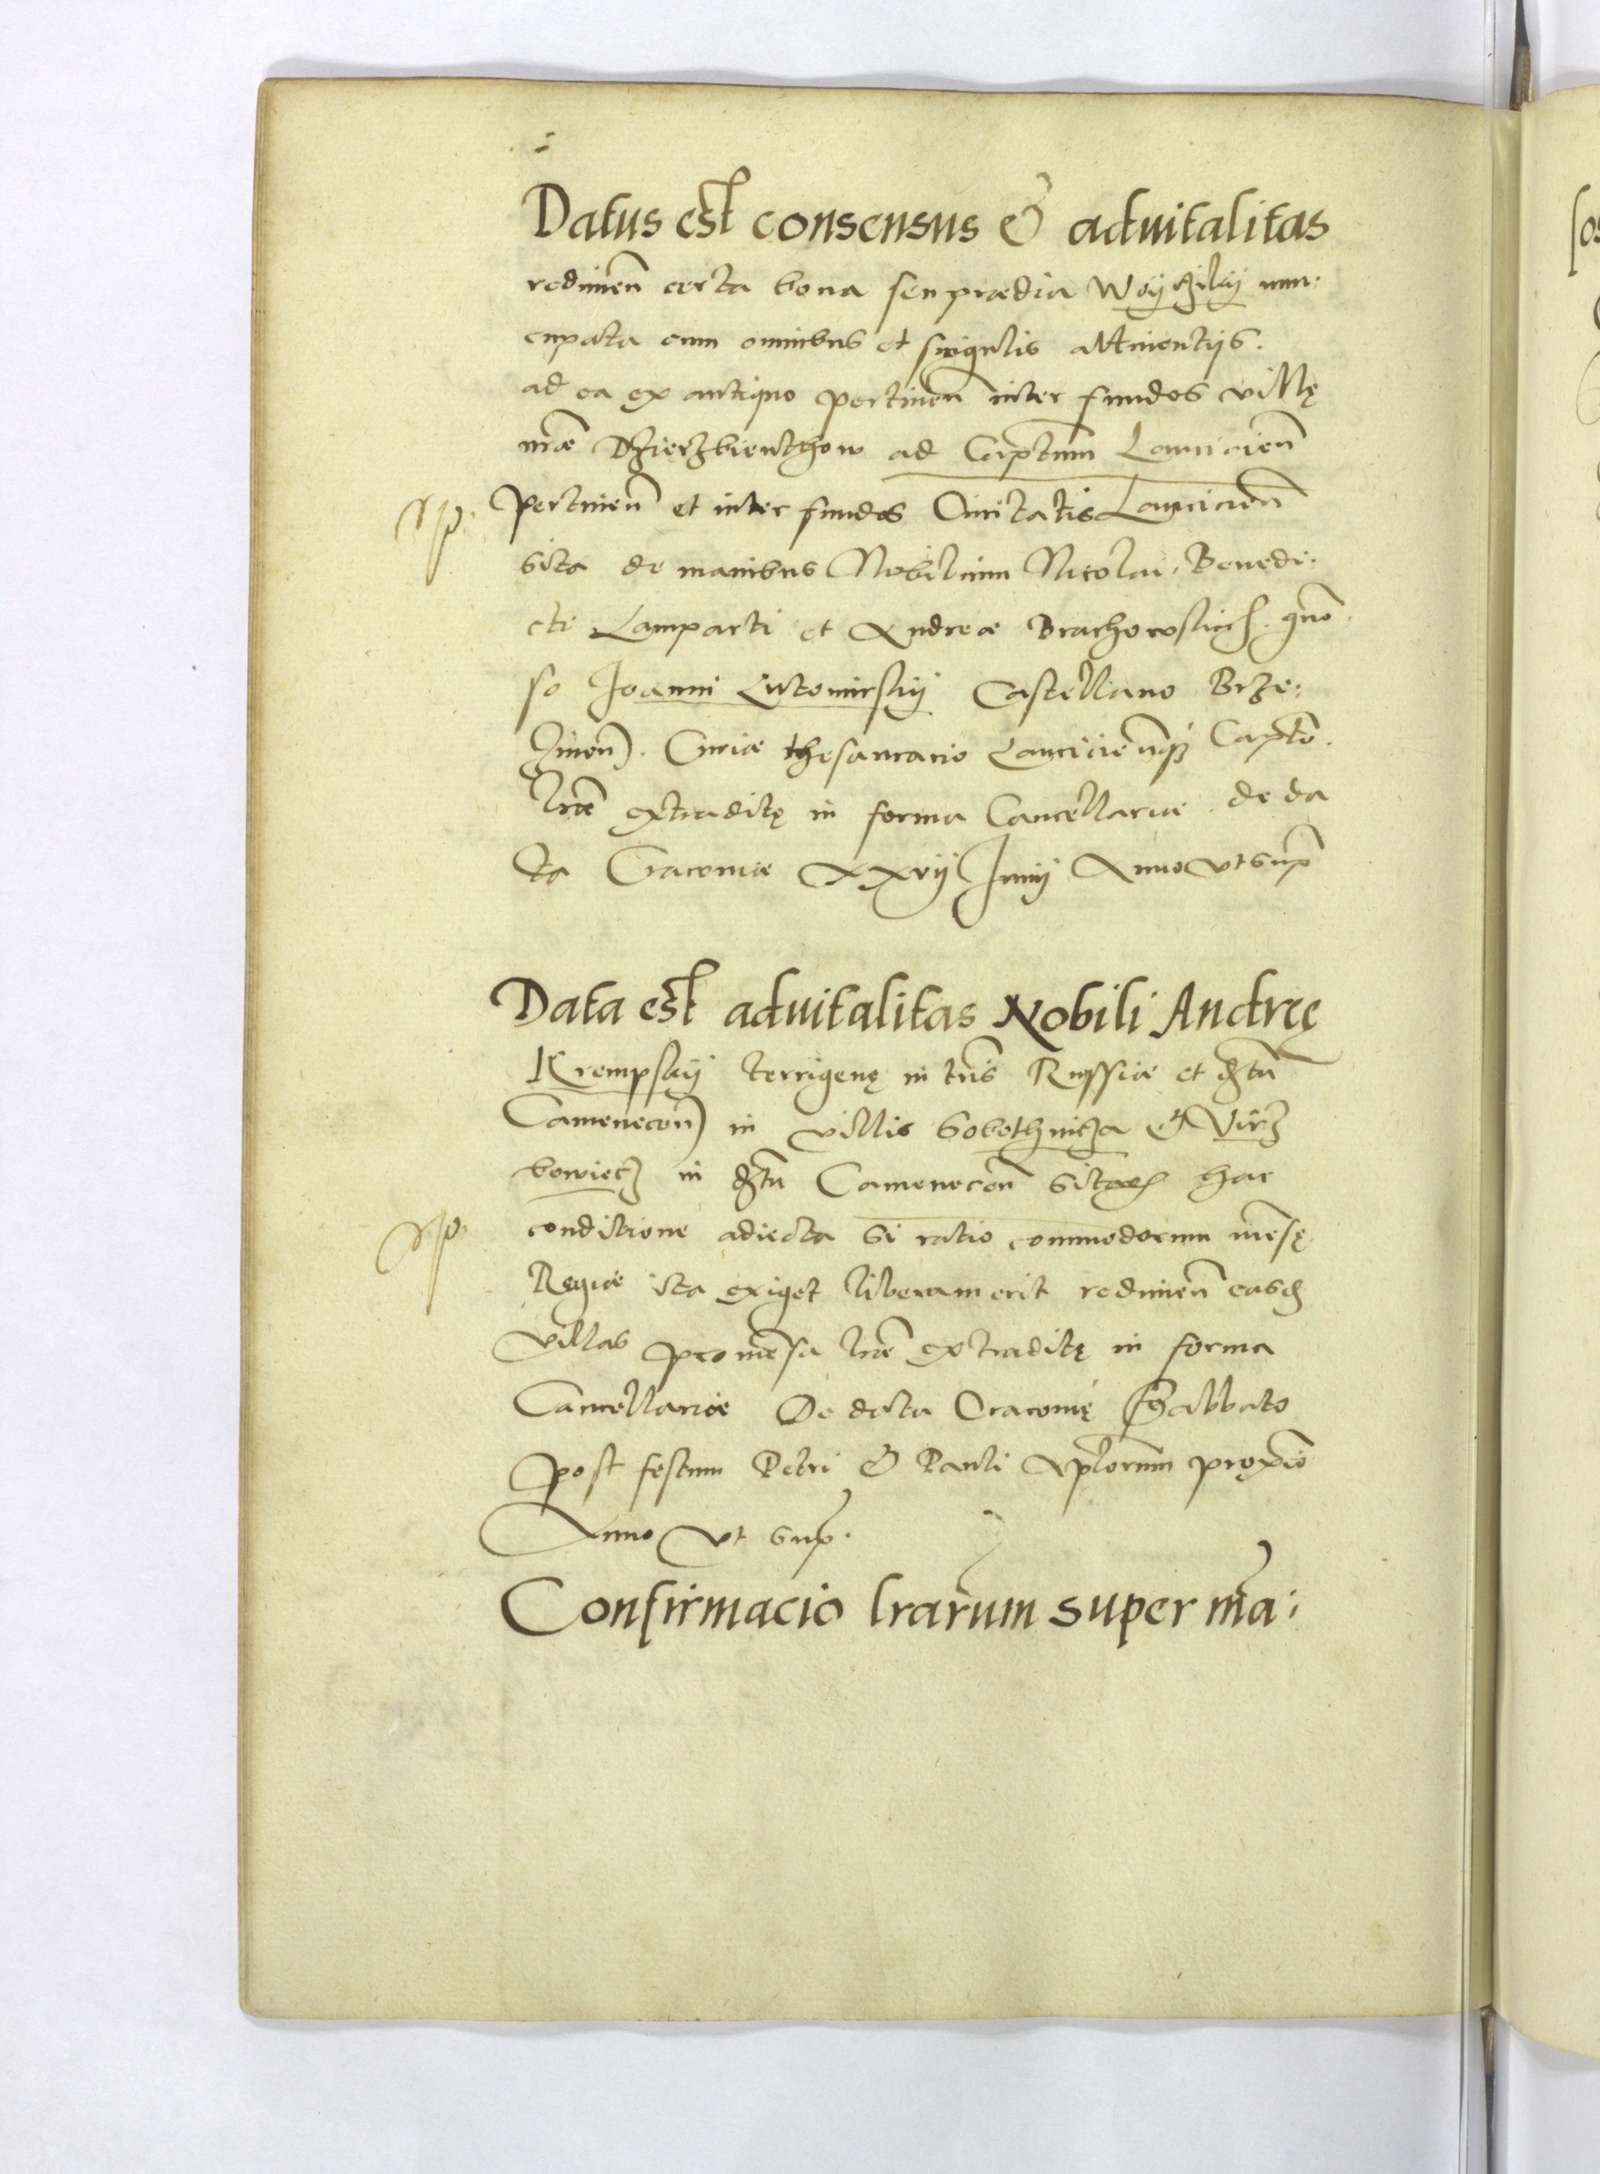 Datus est consensus & aduitalitas
redimen̄ certa bona seu prædia Woÿczikÿ nun:
cupata cum omnibus et singulis attinentijs.
ad ea ex antiquo pertinen̄ inter fundos villę
nr̄æ Dzierzbienthow ad Capt̄um Lancicien̄
pertinen̄ et inter fundos Ciuitatis Lancicien̄
sita de manibus Nobilium Nicolai, Benedi:
cti Lamparti et Andreæ Brachowskich. gn̄o:
so Joanni Lutomirskÿ Castellano Brze:
zinen̄. Curiæ thesaurario Lancicien̄q; Capt̄o.
Lr̄æ extraditę in forma Cancellariæ de da
ta Cracouiæ XXVij Junij Anno vt sup̄
Data est aduitalitas Nobili Andreę
Krempskÿ terrigenę in tr̄is Russiæ et
Camenecen̄ in villis Sobothnicza & Virz
bowiecz in Camenecen̄ sitis hac
conditione adiecta si ratio commodorum men̄sę
Regiæ ita exiget liberum erit redimen̄ easd̄
villas pro men̄sa lr̄æ extraditę in forma
Cancellariæ De data Cracouię Sabbato
post festum Petri & Pauli Ap̄lorum proxīo
Anno vt sup̄.
Confirmacio lr̄arum super m̄a: